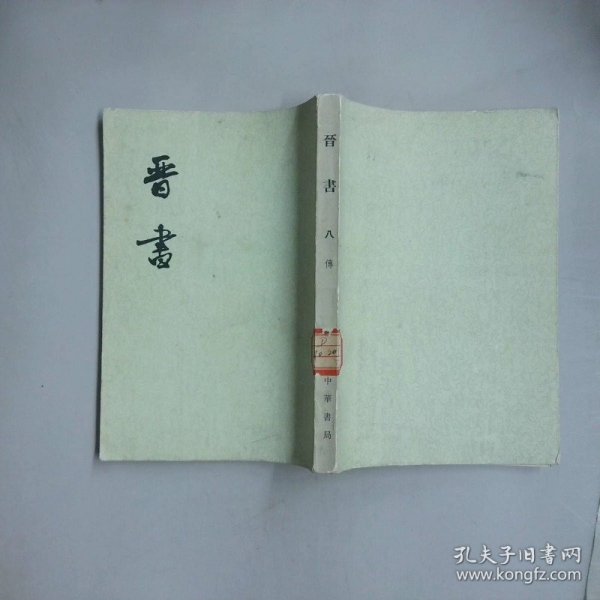 晉書
晉書 八 傳
中華書局
孔夫子旧书网
www.kongfz.com